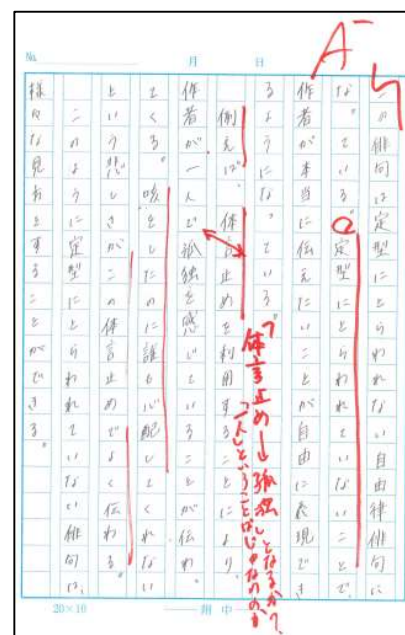 A⁻
No. 月 日
この俳句は定型にとらわれない自由律俳句に
なっている。定型にとらわれていないことで、
作者が本当に伝えたいことが自由に表現でき
るようになっている。
例えば、体言止めを利用することにより、
体言止め→孤独となるか？
作者が一人で孤独を感じていることが伝わ
てくる。咳をしたのに誰も心配してくれない
という悲しさがこの体言止めでよく伝わる。
このように定型にとらわれていない俳句は、
様々な見方をすることができる。
20×10 附中